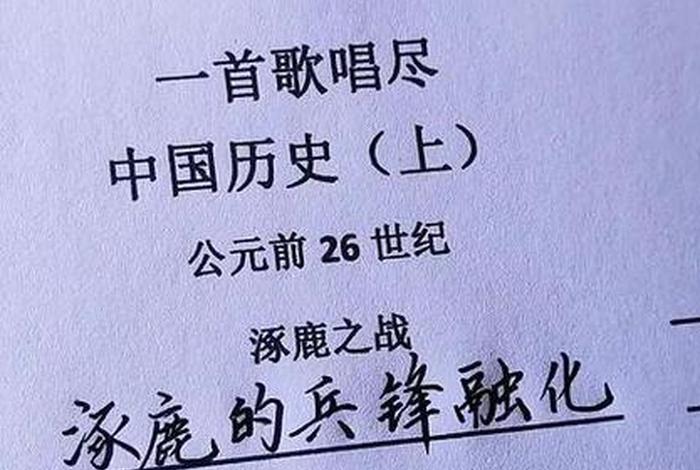 一首歌唱尽
中国历史（上）
公元前 26 世纪
涿鹿之战
涿鹿的兵锋融化